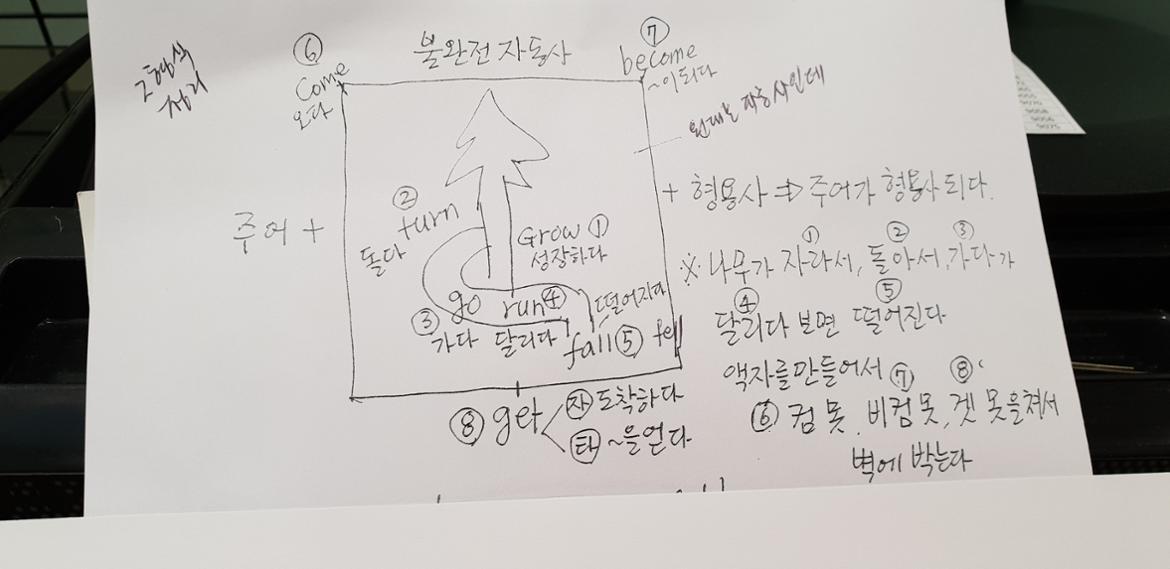 2형식
정리
불완전 자동사
⑥
come
오다
⑦
become
~이 되다
원래는 자동사인데
주어 +
②
turn
돌다
Grow ①
성장하다
③ go
가다
run ④
달리다
떨어지다
fall ⑤ fell
+ 형용사 ⇒ 주어가 형용사 되다.
① ② ③
※ 나무가 자라서, 돌아서, 가다가
④ ⑤
달리다 보면 떨어진다
액자를 만들어서 ⑦ ⑧
⑥ 컴 못, 비컴 못, 겟 못을 쳐서
벽에 박는다
⑧ get
㉂ 도착하다
㉸ ~을 얻다